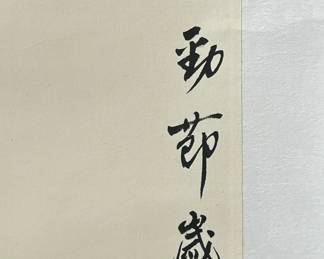 勁節歲